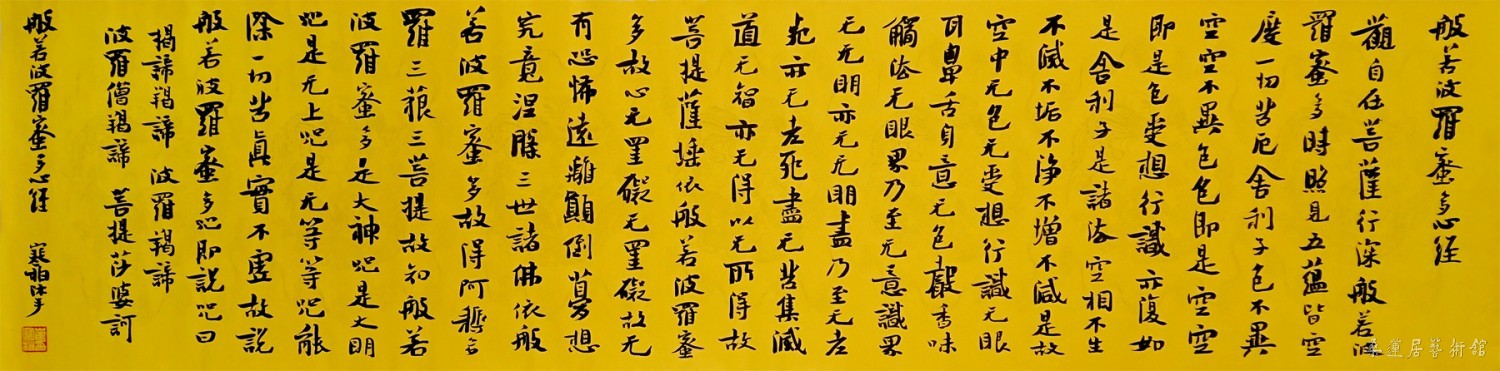 般若波羅蜜多心經
觀自在菩薩行深般若波
羅蜜多時照見五蘊皆空
度一切苦厄舍利子色不異
空空不異色色即是空空
即是色受想行識亦復如
是舍利子是諸法空相不生
不滅不垢不淨不增不減是故
空中无色无受想行識无眼
耳鼻舌身意无色聲香味
觸法无眼界乃至无意識界
无无明亦无无明盡乃至无老
死亦无老死盡无苦集滅
道无智亦无得以无所得故
菩提薩埵依般若波羅蜜
多故心无罣礙无罣礙故无
有恐怖遠離顛倒夢想
究竟涅槃三世諸佛依般
若波羅蜜多故得阿耨多
羅三藐三菩提故知般若
波羅蜜多是大神咒是大明
咒是无上咒是无等等咒能
除一切苦真實不虛故説
般若波羅蜜多咒即説咒曰
揭諦羯諦 波羅羯諦
波羅僧羯諦 菩提莎婆訶
般若波羅蜜多心經 沐手
蓮居藝術館